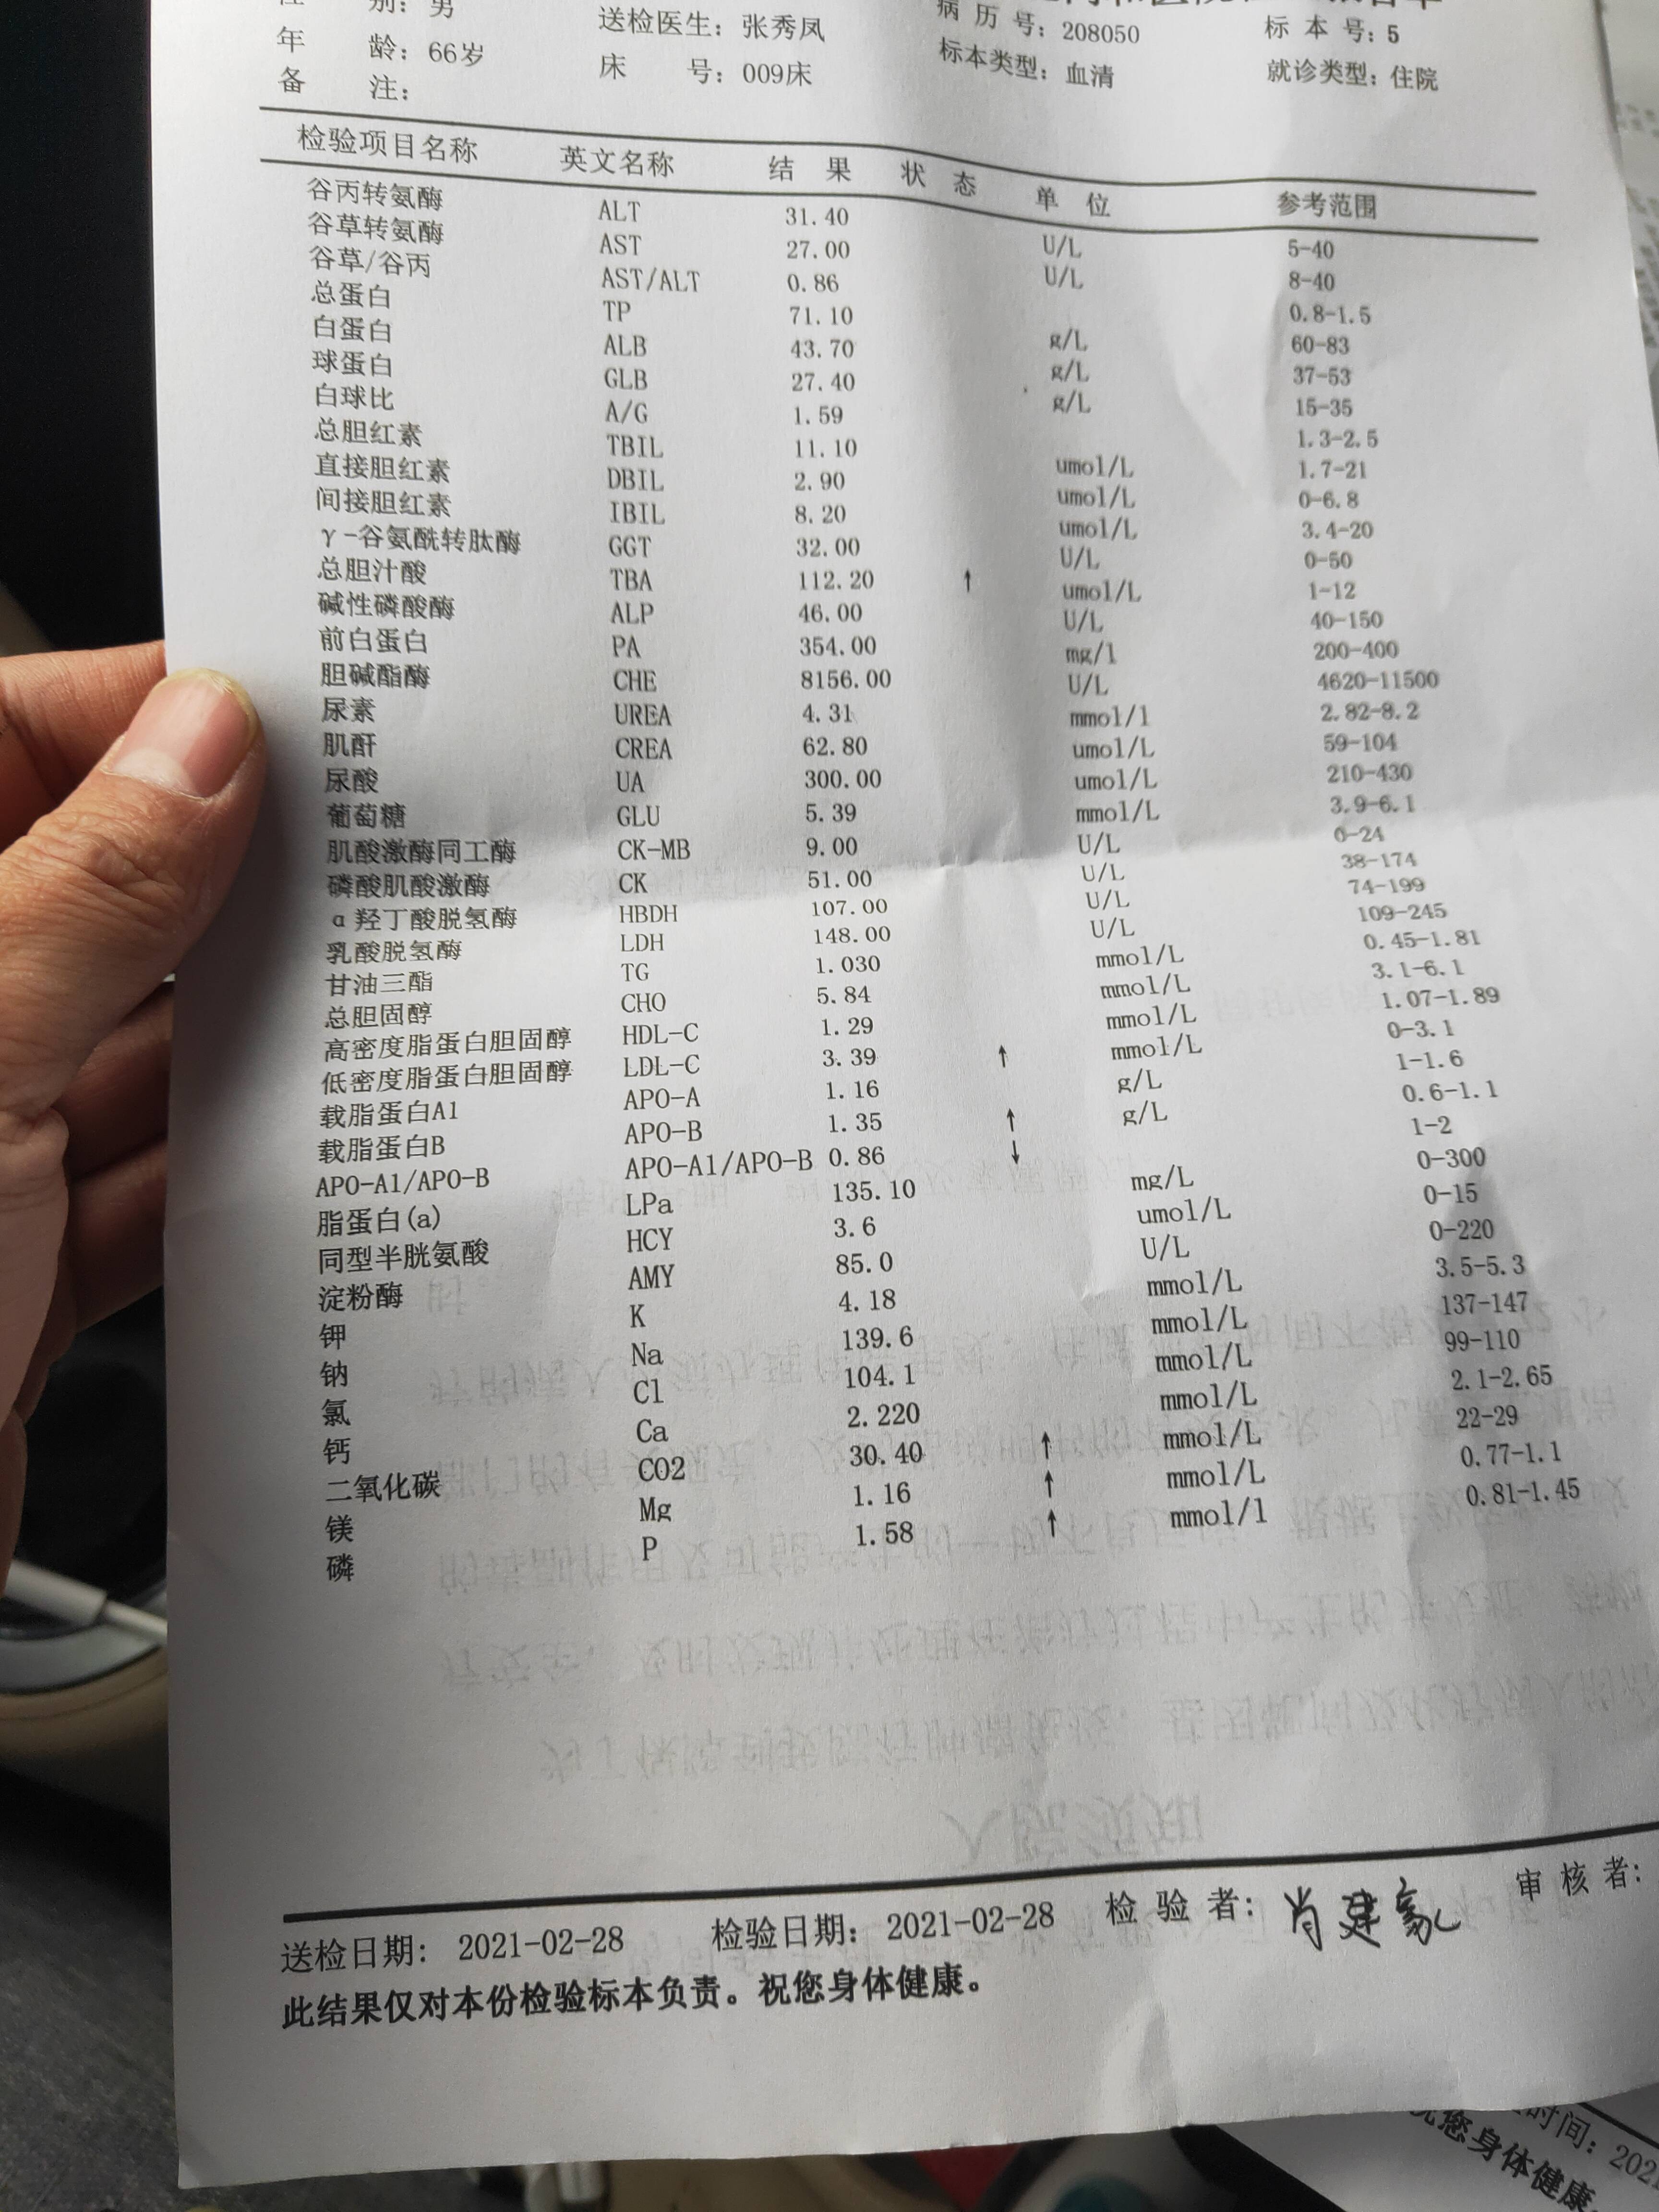 别：男
送检医生：张秀凤
病历号：208050
标本号：5
年龄：66岁
床号：009床
标本类型：血清
就诊类型：住院
备注：
检验项目名称 英文名称 结果 状态 单位 参考范围
谷丙转氨酶 ALT 31.40 U/L 5-40
谷草转氨酶 AST 27.00 U/L 8-40
谷草/谷丙 AST/ALT 0.86 0.8-1.5
总蛋白 TP 71.10 g/L 60-83
白蛋白 ALB 43.70 g/L 37-53
球蛋白 GLB 27.40 g/L 15-35
白球比 A/G 1.59 1.3-2.5
总胆红素 TBIL 11.10 umol/L 1.7-21
直接胆红素 DBIL 2.90 umol/L 0-6.8
间接胆红素 IBIL 8.20 umol/L 3.4-20
γ-谷氨酰转肽酶 GGT 32.00 U/L 0-50
总胆汁酸 TBA 112.20 ↑ umol/L 1-12
碱性磷酸酶 ALP 46.00 U/L 40-150
前白蛋白 PA 354.00 mg/l 200-400
胆碱酯酶 CHE 8156.00 U/L 4620-11500
尿素 UREA 4.31 mmol/l 2.82-8.2
肌酐 CREA 62.80 umol/L 59-104
尿酸 UA 300.00 umol/L 210-430
葡萄糖 GLU 5.39 mmol/L 3.9-6.1
肌酸激酶同工酶 CK-MB 9.00 U/L 0-24
磷酸肌酸激酶 CK 51.00 U/L 38-174
α羟丁酸脱氢酶 HBDH 107.00 U/L 74-199
乳酸脱氢酶 LDH 148.00 U/L 109-245
甘油三酯 TG 1.030 mmol/L 0.45-1.81
总胆固醇 CHO 5.84 mmol/L 3.1-6.1
高密度脂蛋白胆固醇 HDL-C 1.29 mmol/L 1.07-1.89
低密度脂蛋白胆固醇 LDL-C 3.39 ↑ mmol/L 0-3.1
载脂蛋白A1 APO-A 1.16 g/L 1-1.6
载脂蛋白B APO-B 1.35 ↑ g/L 0.6-1.1
APO-A1/APO-B APO-A1/APO-B 0.86 ↓ 1-2
脂蛋白(a) LPa 135.10 mg/L 0-300
同型半胱氨酸 HCY 3.6 umol/L 0-15
淀粉酶 AMY 85.0 U/L 0-220
钾 K 4.18 mmol/L 3.5-5.3
钠 Na 139.6 mmol/L 137-147
氯 Cl 104.1 mmol/L 99-110
钙 Ca 2.220 mmol/L 2.1-2.65
二氧化碳 CO2 30.40 ↑ mmol/L 22-29
镁 Mg 1.16 ↑ mmol/L 0.77-1.1
磷 P 1.58 ↑ mmol/l 0.81-1.45
入院须知
送检日期：2021-02-28 检验日期：2021-02-28 检验者：肖建家 审核者：
此结果仅对本份检验标本负责。祝您身体健康。
时间：202
祝您身体健康